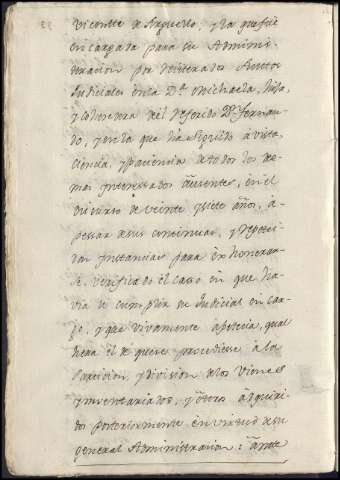 Vicente de Arguello, y la que fue
encargada para su Admini-
stracion por reiterados Autos
Judiciales en la Da. Michaela, hija,
y coheredera del referido Dn. Fernan-
do, y en la que ha seguido à vista,
ciencia, y paciencia de todos los de-
mas Interesados en el
discurso de veinte y siete años, à
pessar de sus continuas, y repeti-
das instancias para exhonerar-
se, verificado el caso en que ha-
via de cumplir su Judicial encar-
go, y que vivamente apetecia, qual
hera el de que se procediese à la
Particion, y division de los Vienes
Ynventariados, y otros adquiri-
dos posteriormente en virtud de su
general Administracion: ante